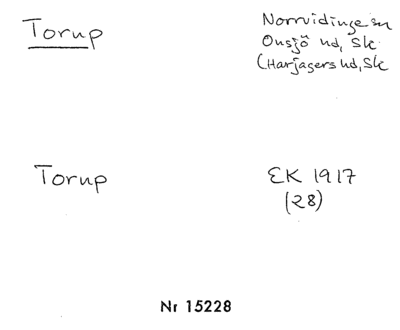 Torup
Norrvidinge sn
Onsjö hd, Sk
(Harjagers hd, Sk
Torup
EK 1917
(28)
Nr 15228